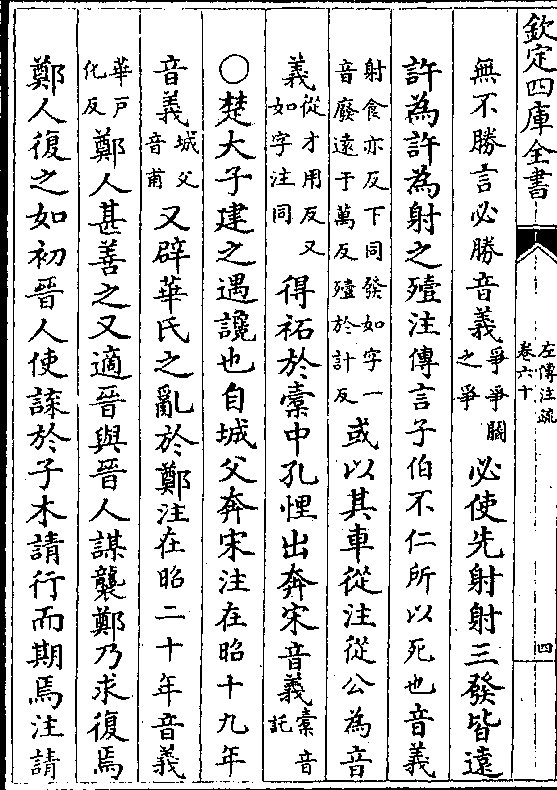 欽定四庫全書
左傳注疏
卷六十
四
無不勝言必勝音義爭爭鬬之爭必使先射射三發皆遠
許為許為射之殪注傳言子伯不仁所以死也音義
射食亦反下同發如字一音廢遠于萬反殪於計反或以其車從注從公為音
義從才用反又如字注同得祏於橐中孔悝出奔宋音義橐音託
○楚大子建之遇讒也自城父奔宋注在昭十九年
音義城父音甫又辟華氏之亂於鄭注在昭二十年音義
華戶化反鄭人甚善之又適晉與晉人謀襲鄭乃求復焉
鄭人復之如初晉人使諜於子木請行而期焉注請